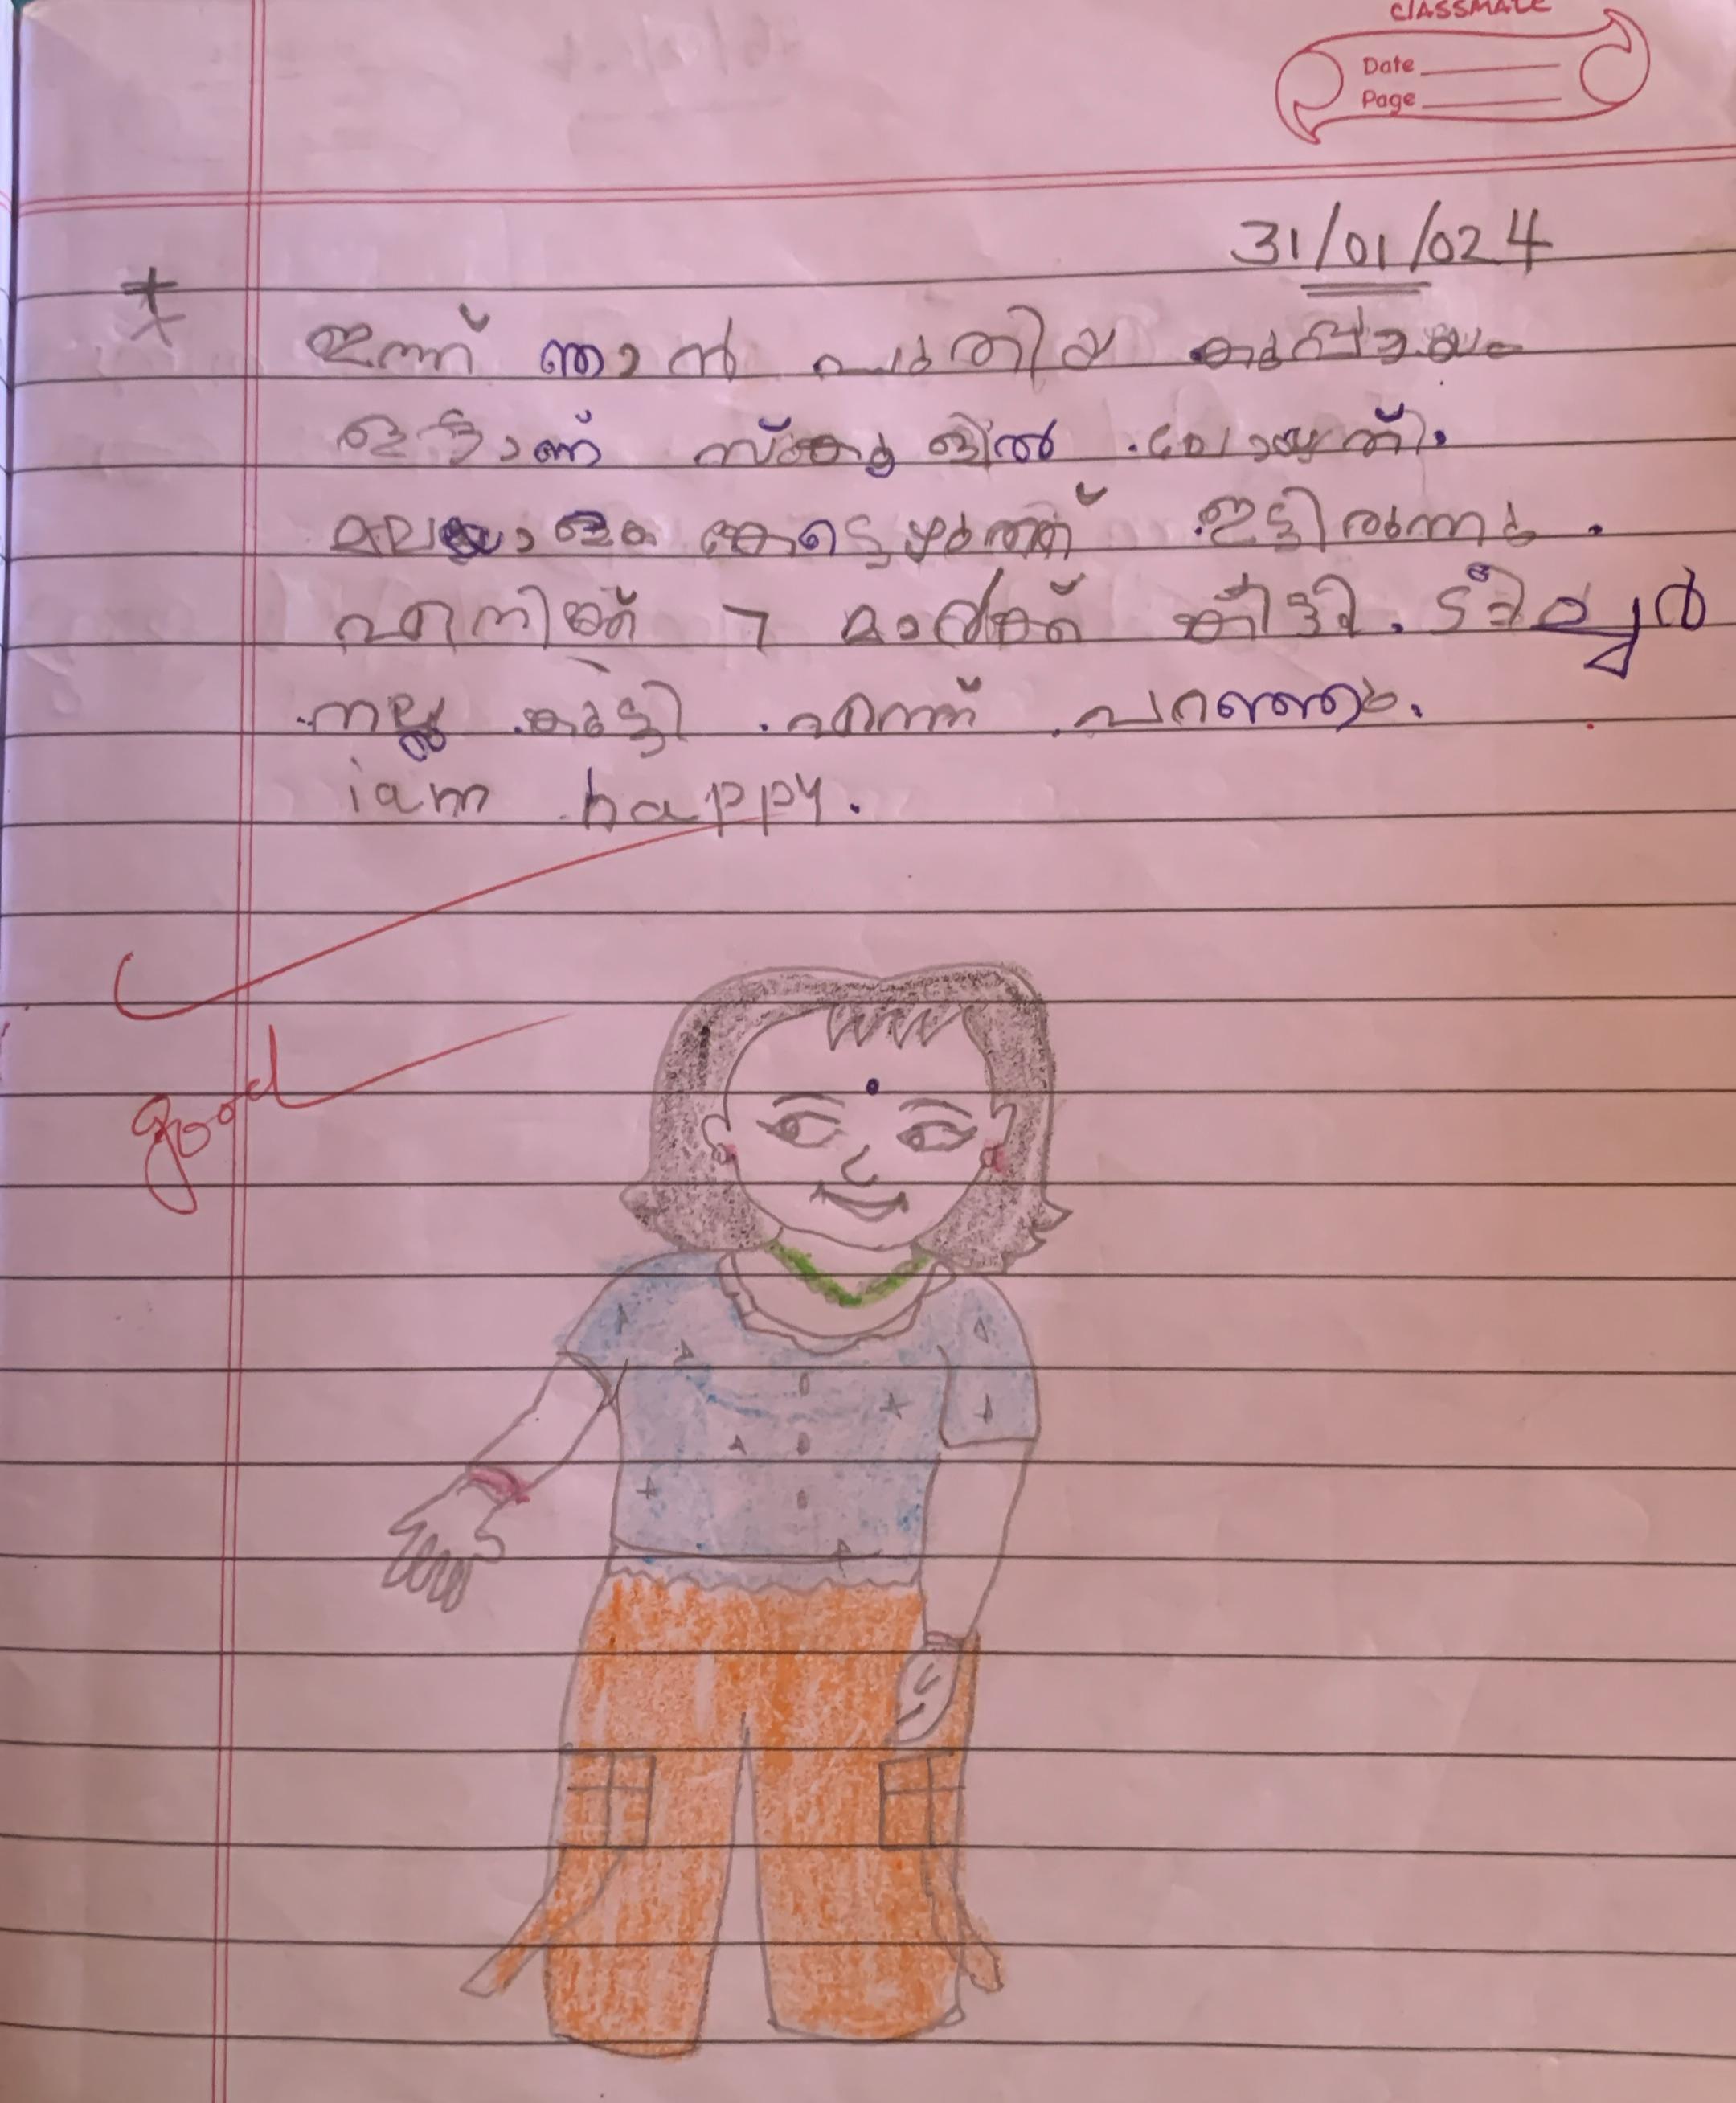 classmate
Date
Page
31/01/024
ഇന്ന് ഞാൻ പുതിയ കുപ്പായം
ഇട്ടാണ് സ്കൂളിൽ പോയത്.
മലയാളം കേട്ടെഴുത്ത് ഇട്ടിരുന്നു.
എനിക്ക് 7 മാർക്ക് കിട്ടി. ടീച്ചർ
നല്ല കുട്ടി എന്ന് പറഞ്ഞു.
iam happy.
good